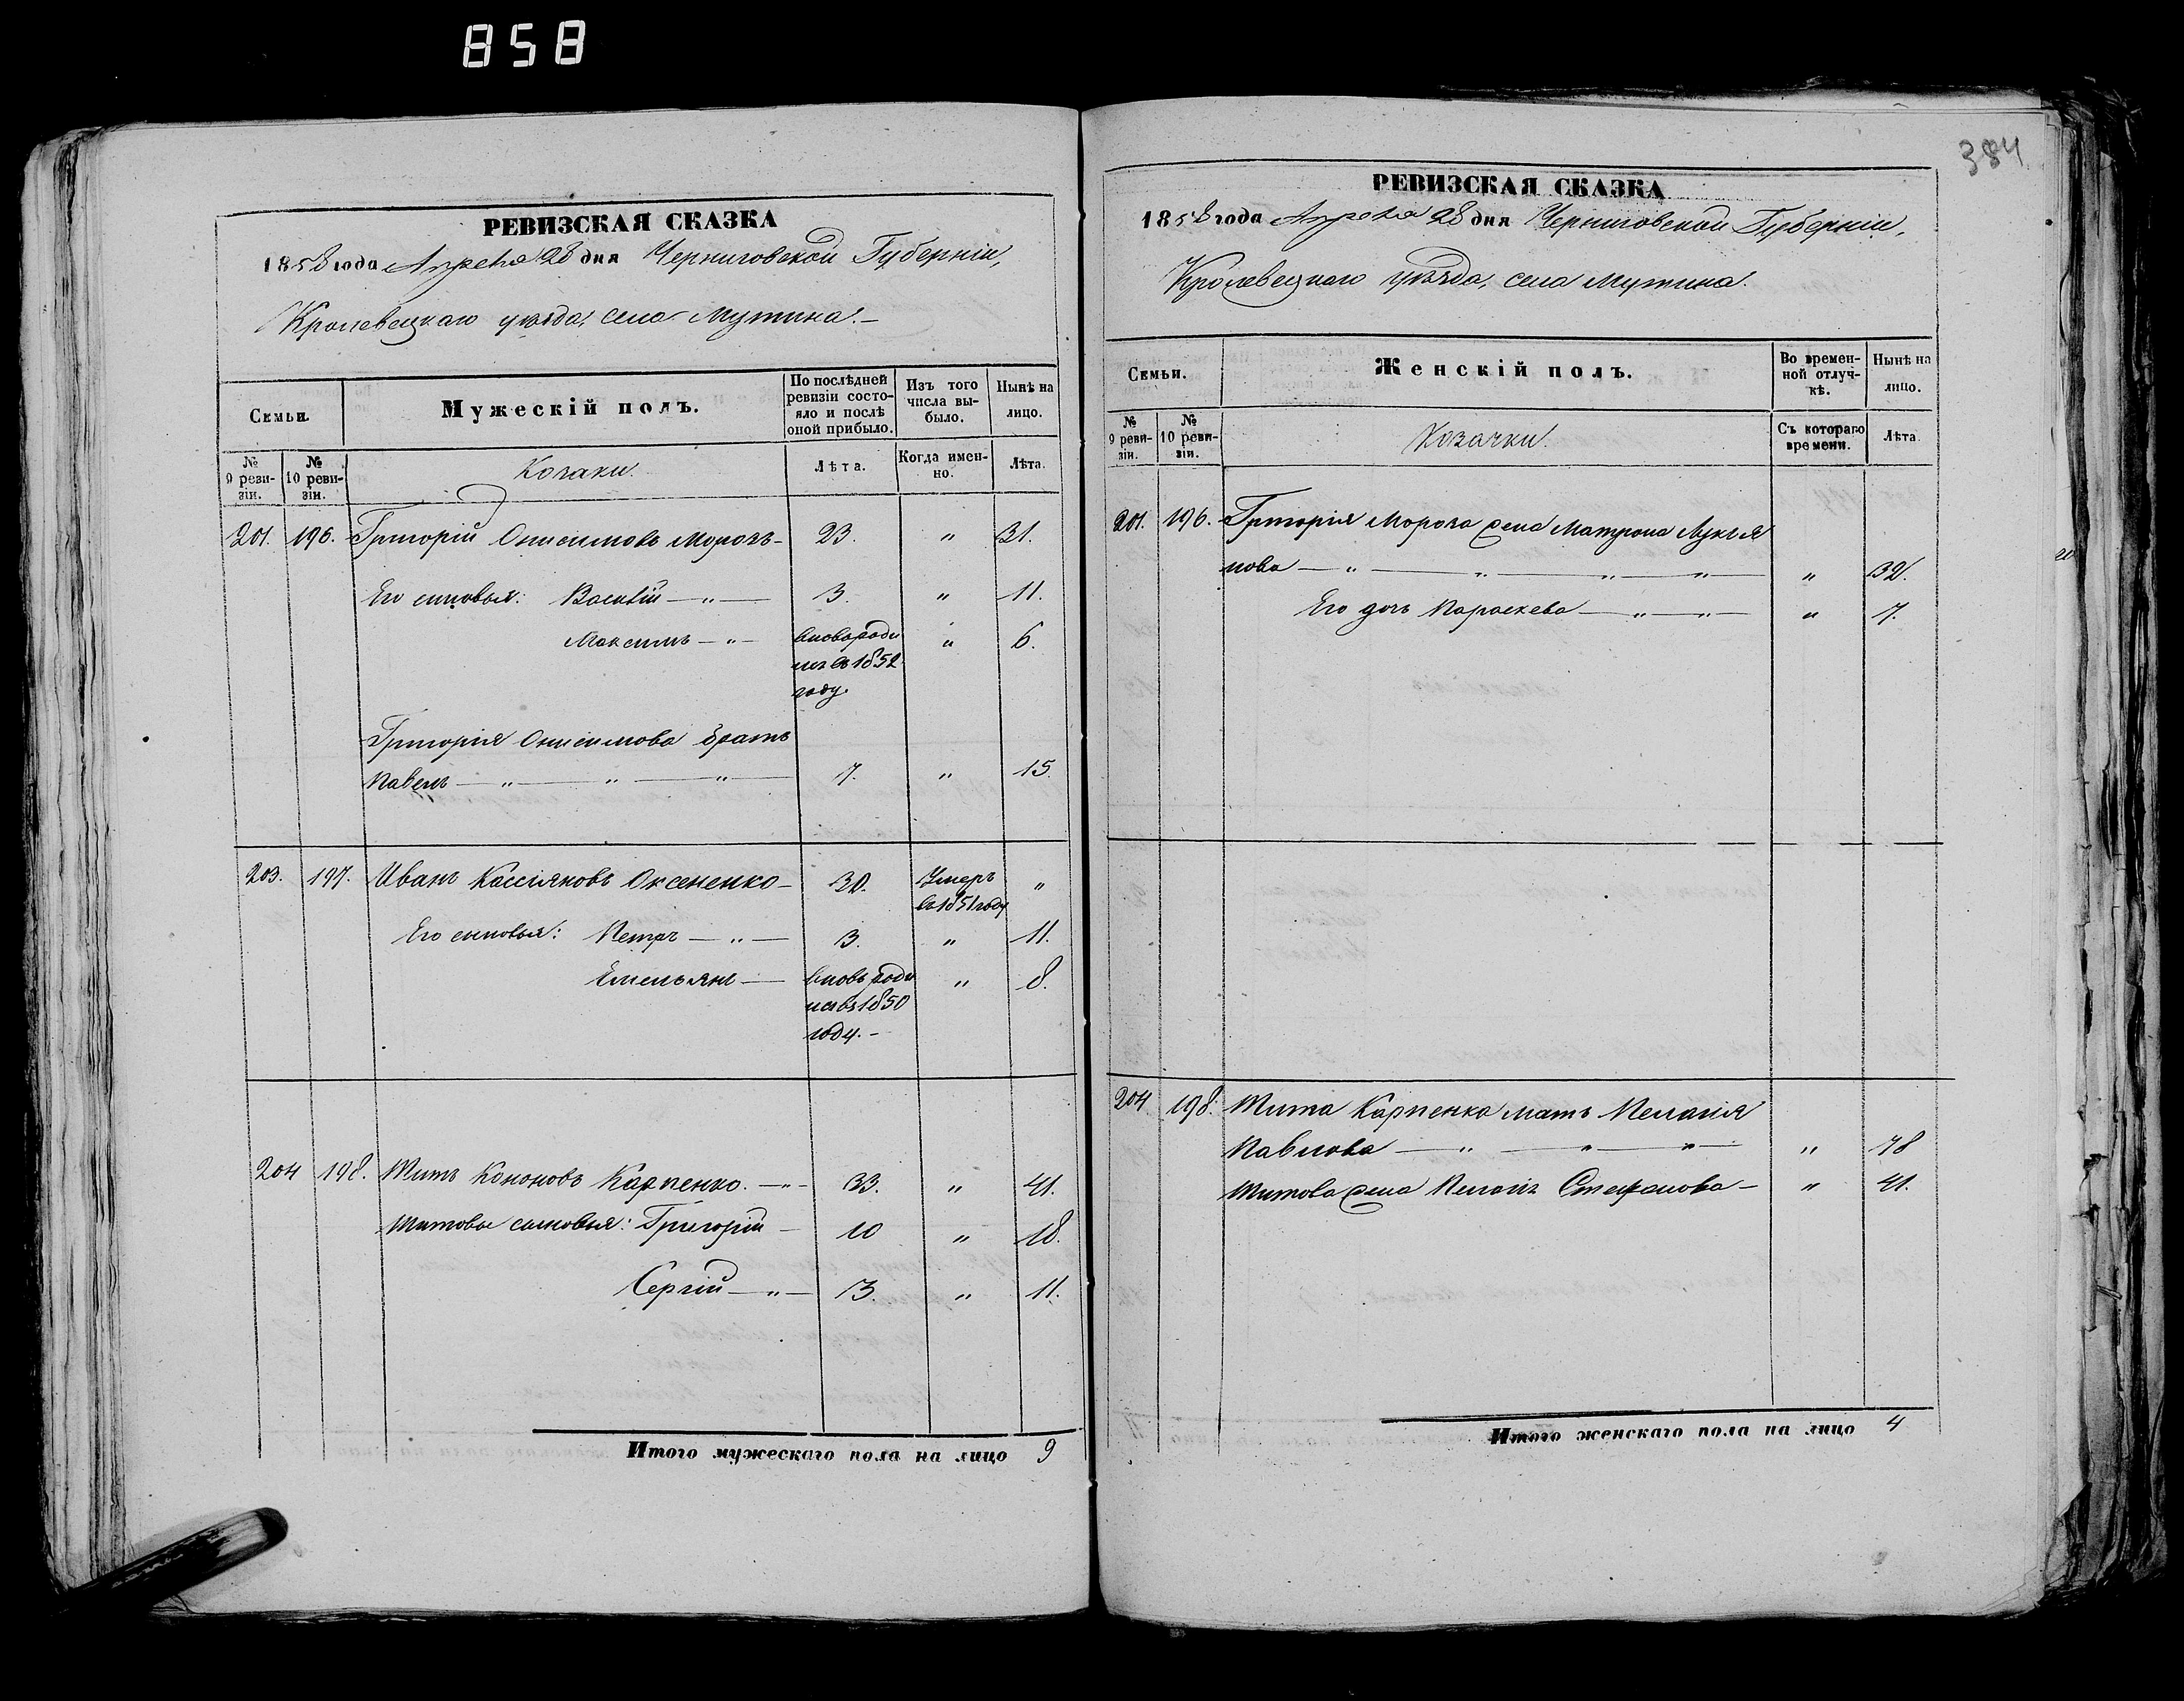 858
384
РЕВИЗСКАЯ СКАЗКА
1858 года Апреля 28 дня Черниговской Губерніи,
Кролевецкаго уѣзда, села Мутина.–
Семьи.
Мужескій полъ.
По послѣдней ревизіи состояло и послѣ оной прибыло.
Изъ того числа выбыло.
Нынѣ на лицо.
№ 9 ревизіи.
№ 10 ревизіи.
Козаки.
Лѣта.
Когда именно.
Лѣта.
201. 196. Григорій Онисимовъ Морозъ – 23. " 31.
Его сыновья: Василій – " – 3. " 11.
Максимъ – " – вновь роди " 6.
лся въ 1852
году.
Григорія Онисимова братъ
Павелъ – " – " – " – 7. " 15.
203. 197. Иванъ Кассіяновъ Оксененко – 30. Умеръ "
въ 1851 году
Его сыновья: Петръ – " – 3. " 11.
Емельянъ – вновь роди " 8.
лся въ 1850
году.–
204 198. Титъ Кононовъ Карпенко. – " – 33. " 41.
Титовы сыновья: Григорій – 10 " 18.
Сергій – " – 3. " 11.
Итого мужескаго пола на лицо 9
РЕВИЗСКАЯ СКАЗКА
1858 года Апреля 28 дня Черниговской Губерніи,
Кролевецкаго уѣзда, села Мутина.
Семьи.
Женскій полъ.
Во временной отлучкѣ.
Нынѣ на лицо.
№ 9 ревизіи.
№ 10 ревизіи.
Козачки.
Съ котораго времени.
Лѣта.
201. 196. Григорія Мороза жена Матрона Лукья
нова – " – " – " – " – " 32.
Его дочь Параскева – " – " – " 7.
204 198. Тита Карпенка мать Пелагія
Павлова – " – " – " – " 78
Титова жена Пелагія Стефанова – " 41.
Итого женскаго пола на лицо 4